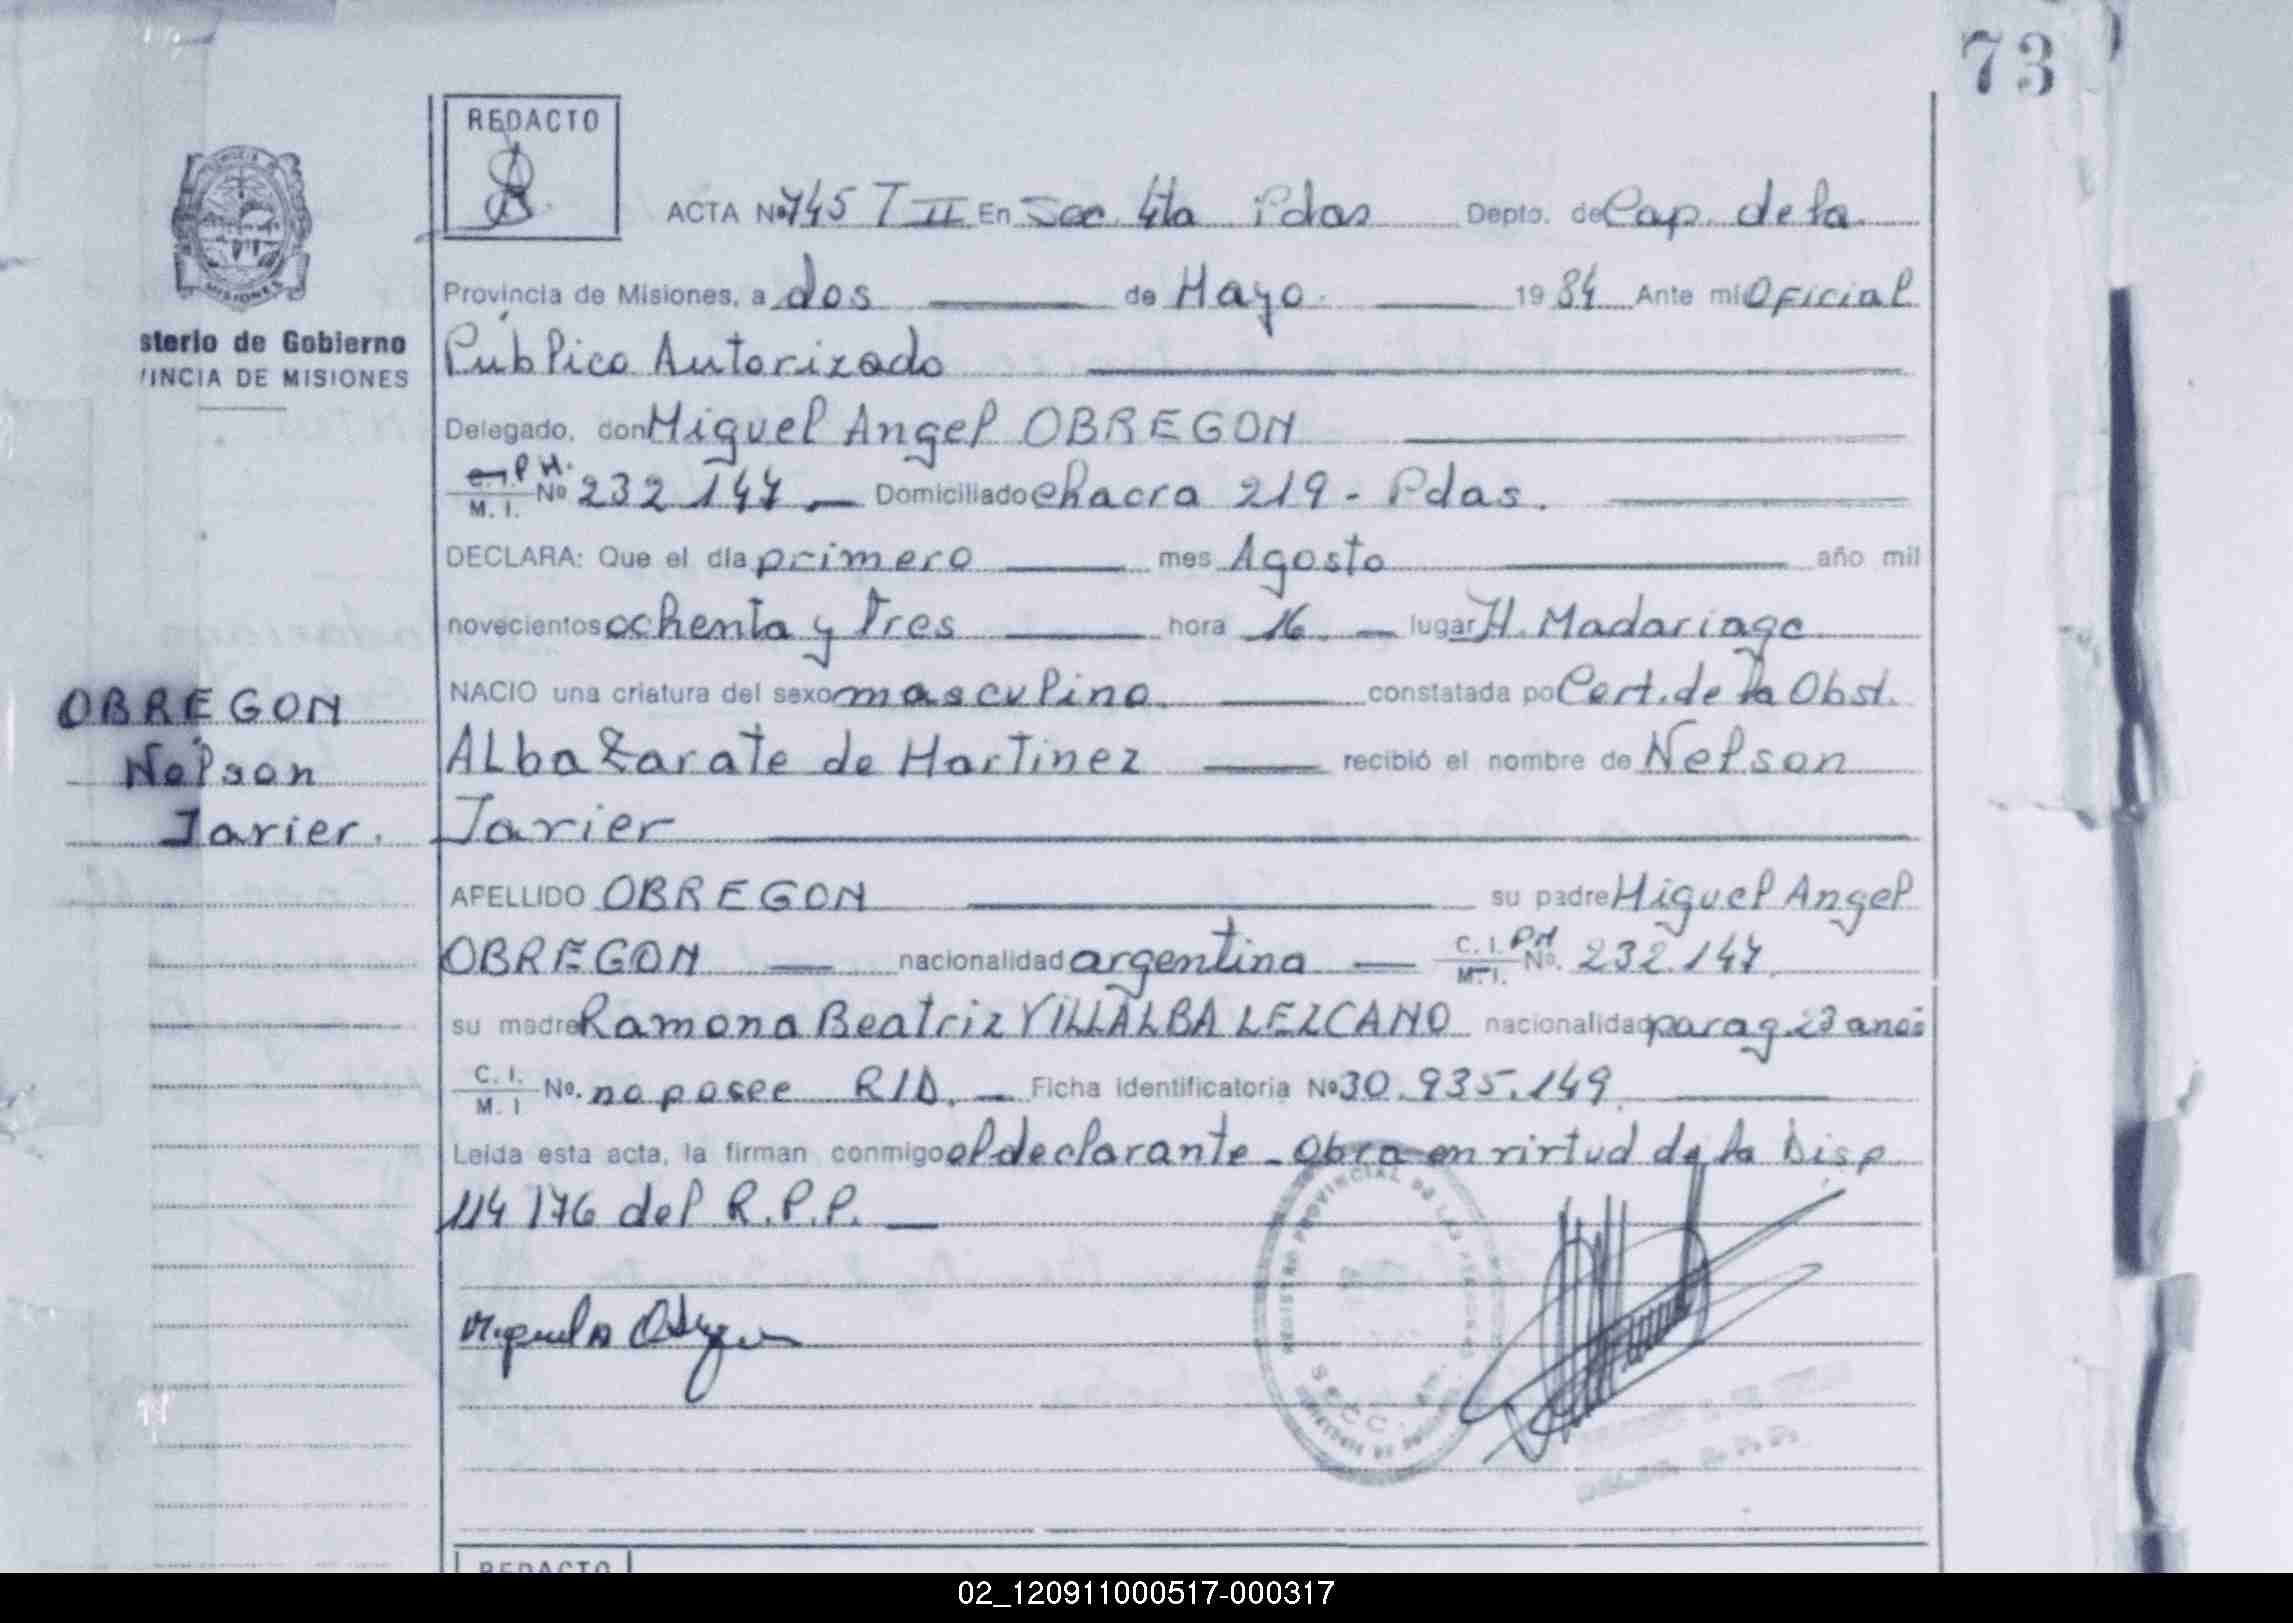 73
REDACTO
ACTA Nº 745 T II En Sec. 4ta Pdas Depto. de Cap. de la
Provincia de Misiones, a dos de Mayo 1984 Ante mi Oficial
sterio de Gobierno
VINCIA DE MISIONES
Público Autorizado
Delegado, don Miguel Angel OBREGON
C.I. P.N. M.I. Nº 232.147 Domiciliado chacra 219 - Pdas.
DECLARA: Que el día primero mes Agosto año mil
novecientos ochenta y tres hora 16 lugar H. Madariaga
OBREGON
Nelson
Javier.
NACIO una criatura del sexo masculino constatada po Cert. de la Obst.
ALba Zarate de Martinez recibió el nombre de Nelson
Javier
APELLIDO OBREGON su padre Miguel Angel
OBREGON nacionalidad argentina C.I. PN M.I. Nº. 232.147
su madre Ramona Beatriz VILLALBA LEZCANO nacionalidad parag. 23 anos
C.I. M.I Nº. no posee RID. Ficha identificatoria Nº 30.935.149
Leída esta acta, la firman conmigo el declarante - Obra en virtud de la Disp
114/76 del R.P.P.
REGISTRO PROVINCIAL DE LAS PERSONAS
SECC.
REDACTO
02_120911000517-000317